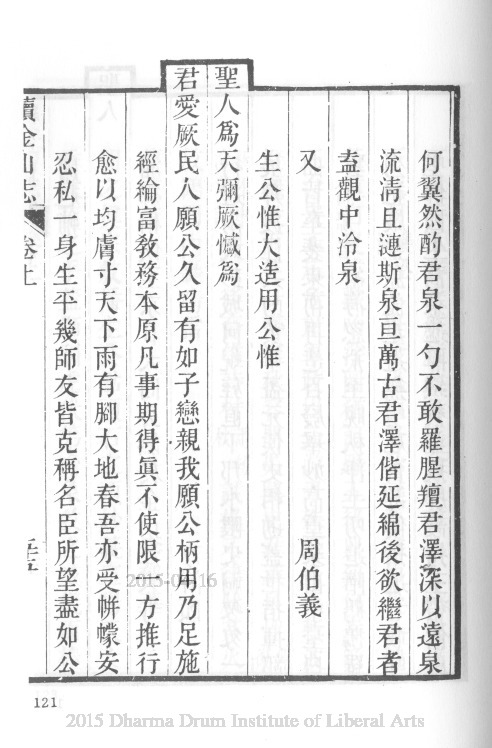 何翼然酌君泉一勺不敢羅腥羶君澤深以遠泉
流清且漣斯泉亘萬古君澤偕延綿後欲繼君者
盍觀中泠泉
又 周伯義
生公惟大造用公惟
聖人爲天彌厥憾爲
君愛厥民人願公久留有如子戀親我願公柄用乃足施
經綸富敎務本原凡事期得眞不使限一方推行
愈以均膚寸天下雨有腳大地春吾亦受帡幪安
忍私一身生平幾師友皆克稱名臣所望盡如公
續金山志 卷上
121
2015-04-16
2015 Dharma Drum Institute of Liberal Arts